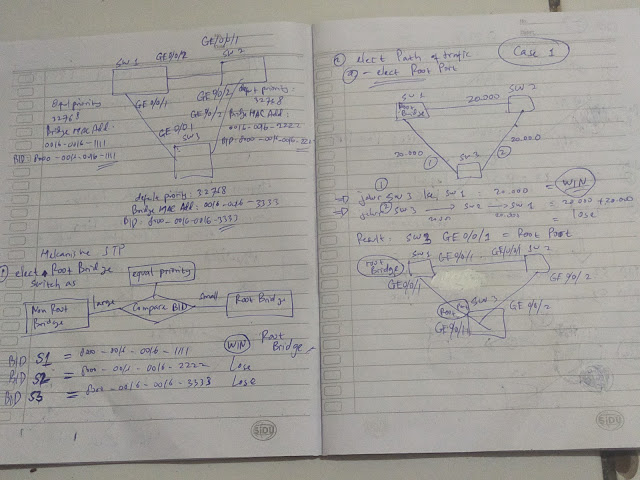 GE/0/0/1
SW 1
GE0/0/2
SW 2
GE0/0/1
GE%/2
default priority:
32768
Bridge MAC Add:
0016-0016-1111
BID: 8000-0016-0016-1111
GE0/0/1
SW3
GE%/2
default priority:
32768
Bridge MAC Add:
0016-0016-2222
default priority: 32768
Bridge MAC Add: 0016-0016-3333
BID: 8000-0016-0016-3333
Mekanisme STP
elect Root Bridge
Switch as
equal priority
Non Root
Bridge
Large
Compare BID
Small
Root Bridge
BID S1 = 8000-0016-0016-1111
WIN
Root
Bridge
BID S2 = 8000-0016-0016-2222 Lose
BID S3 = 8000-0016-0016-3333 Lose
SIDU
② elect Path of trafic
Case 1
- elect Root Port
SW 1
Root
Bridge
20.000
SW 2
20.000
①
②
20.000
SW 3
①
jalur SW3 ke SW1 : 20.000 = WIN
② SW3 → SW2 → SW1 = 20.000 + 20.000
20.000
= lose
Result: SW3 GE0/0/1 = Root Port
root
Bridge
SW1
GE0/0/1
SW2
GE0/0/1
GE%/2
Root Port
SW3
GE0/0/2
GE%/1
SIDU